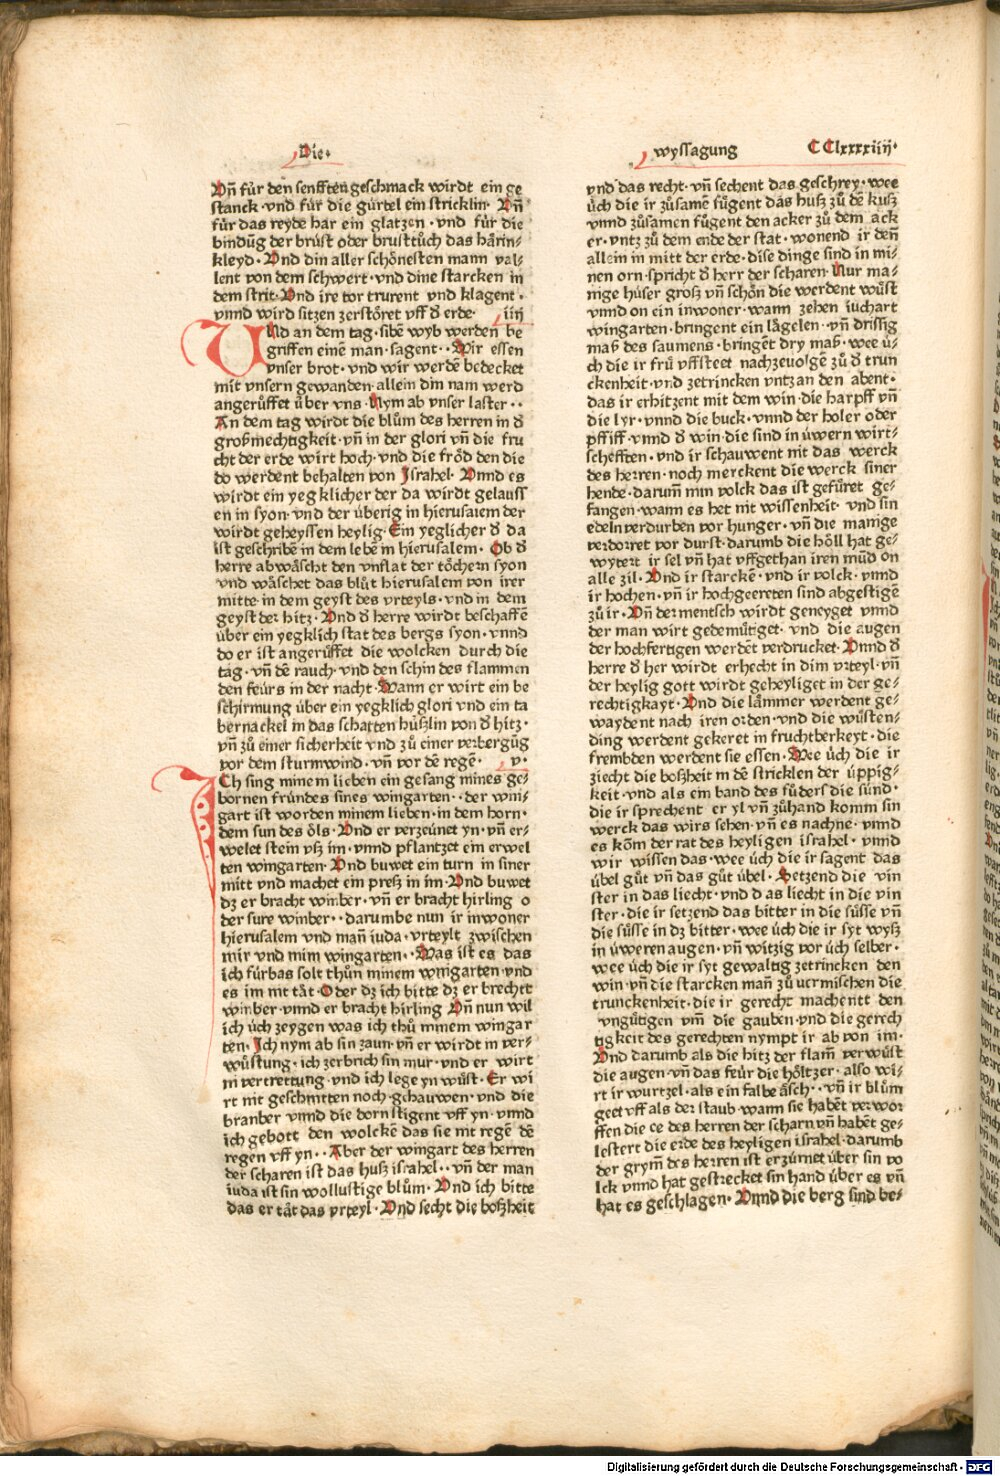 Die·
wyssagung CClxxxxiiij·
Vñ für den senfften geschmack wirdt ein ge
stanck · vnd für die gürtel ein stricklin · Vñ
für das reyde har ein glatzen · vnd für die
bindūg der brúst oder brusttůch das hårin⸗
kleyd · Vnd din aller schönesten mann val⸗
lent von dem schwert · vnd dine starcken in
dem strit · Vnd ire tor trurent vnd klagent ·
vnnd wird sitzen zerstöret vff d̄ erde · iiij
Vnd an dem tag · sibē wyb werden be
griffen einē man · sagent · · Wir essen
vnser brot · vnd wir werdē bedecket
mit vnsern gewanden · allein din nam werd
angerůffet über vns · Nym ab vnser laster · ·
An dem tag wirdt die blům des herren in d̄
großmechtigkeit · vñ in der glori vñ die fru
cht der erde wirt hoch · vnd die fröd den die
do werdent behalten von Israhel · Vnnd es
wirdt ein yegklicher der da wirdt gelauss
en in syon · vnd der überig in hierusalem der
wirdt geheyssen heylig · Ein yeglicher d̄ da
ist geschribē in dem lebē in hierusalem · Ob d̄
herre abwåscht den vnflat der töchern syon
vnd wåschet das blůt hierusalem von irer
mitte · in dem geyst des vrteyls · vnd in dem
geyst der hitz · Vnd d̄ herre wirdt beschaffē
über ein yegklich stat des bergs syon · vnnd
do er ist angerůffet die wolcken durch die
tag · vñ dē rauch · vnd den schin des flammen
den feürs in der nacht · Wann er wirt ein be
schirmung über ein yegklich glori vnd ein ta
bernackel in das schatten hüßlin von d̄ hitz ·
vñ zů einer sicherheit vnd zů einer verbergūg
vor dem sturmwind · vñ vor dē regē · v·
ICh sing minem lieben ein gesang mines ge⸗
bornen fründes sines wingarten · · der win⸗
gart ist worden minem lieben · in dem horn ·
dem sun des öls · Vnd er verzeünet yn · vñ er⸗
welet stein vß im · vnnd pflantzet ein erwel
ten wingarten · Vnd buwet ein turn in siner
mitt vnd machet ein preß in im · Vnd buwet
dz er bracht winber · vñ er bracht hirling o
der sure winber · · darumbe nun ir inwoner
hierusalem vnd mañ iuda · vrteylt zwischen
mir vnd mim wingarten · · Was ist es das
ich fürbas solt thůn minem wingarten vnd
es im nit tåt · Oder dz ich bitte dz er brechte
winber · vnnd er bracht hirling Vñ nun wil
ich üch zeygen was ich thů minem wingar
ten · Ich nym ab sin zaun · vñ er wirdt in ver⸗
wůstung · ich zerbrich sin mur · vnd er wirt
in vertrettung · vnd ich lege yn wůst · Er wi
rt nit geschnitten noch gehauwen · vnd die
bramber vnnd die dorn stigent vff yn · vnnd
ich gebott den wolckē das sie nit regē dē
regen vff yn · · Aber der wingart des herren
der scharen ist das huß israhel · · vñ der man
iuda ist sin wollustige blům · Vnd ich bitte
das er tåt das vrteyl · Vnd secht die boßheit
vnd das recht · vñ sechent das geschrey · wee
üch die ir zůsamē fügent das huß zů dē huß
vnnd zůsamen fügent den acker zů dem ack
er · vntz zů dem ende der stat · wonend ir deñ
allein in mitt der erde · dise dinge sind in mi⸗
nen orn · spricht d̄ herr der scharen · Nur ma⸗
nige hüser groß vñ schön die werdent wůst
vnnd on ein inwoner · wann zehen iuchart
wingarten · bringent ein lågelen · vñ drissig
maß des saumens · bringēt dry maß · wee ü⸗
ch die ir frů vffsteet nachzeuolgē zů d̄ trun
ckenheit · vnd zetrincken vntz an den abent ·
das ir erhitzent mit dem win · die harpff vñ
die lyr · vnnd die buck · vnnd der holer oder
pffiff · vnnd d̄ win · die sind in üwern wirt⸗
schefften · vnd ir schauwent nit das werck
des herren · noch merckent die werck siner
hende · darum̄ min volck das ist gefůret ge⸗
fangen · wann es het nit wissenheit · vnd sin
edeln verdurben vor hunger · vñ die manige
verdorret vor durst · darumb die höll hat ge⸗
wytert ir sel vñ hat vffgethan iren mūd on
alle zil · Vnd ir starckē · vnd ir volck · vnnd
ir hochen · vñ ir hochgeereten sind abgestigē
zů ir · Vñ der mentsch wirdt geneyget vnnd
der man wirt gedemütiget · vnd die augen
der hochfertigen werdēt verdrucket · Vnnd d̄
herre d̄ her wirdt erhecht in dim vrteyl · vñ
der heylig gott wirdt geheyliget in der ge⸗
rechtigkayt · Vnd die låmmer werdent ge⸗
waydent nach iren orden · vnd die wůsten⸗
ding werdent gekeret in fruchtberkeyt · die
frembden werdent sie essen · Wee üch die ir
ziecht die boßheit in dē stricklen der üppig⸗
keit · vnd als ein band des fůders die sünd ·
die ir sprechent er yl vñ zůhand komm sin
werck das wirs sehen · vñ es nachne · vnnd
es kōm der rat des heyligen israhel · vnnd
wir wissen das · wee üch die ir sagent das
übel gůt vñ das gůt übel · Setzend die vin
ster in das liecht · vnd d as liecht in die vin
ster · die ir setzend das bitter in die sůsse vñ
die sůsse in dz bitter · wee üch die ir syt wyß
in üweren augen · vñ witzig vor üch selber ·
wee üch die ir syt gewaltig zetrincken den
win · vñ die starcken mañ zů vermischen die
trunckenheit · die ir gerecht machentt den
vngůtigen vm̄ die gauben · vnd die gerech
tigkeit des gerechten nympt ir ab von im ·
Vnd darumb als die hitz der flam̄ verwůst
die augen · vñ das feür die höltzer · also wi⸗
rt ir wurtzel · als ein falbe åsch · · vñ ir blům
geet vff als der staub · wann sie habēt verwor
ffen die ee des herren der scharn vñ habēt ge⸗
lestert die erde des heyligen israhel · darumb
der grym̄ des herren ist erzürnet über sin vo
lck vnnd hat gestrecket sin hand über es vñ
hat es geschlagen · Vnnd die berg sind be⸗
Digitalisierung gefördert durch die Deutsche Forschungsgemeinschaft - DFG